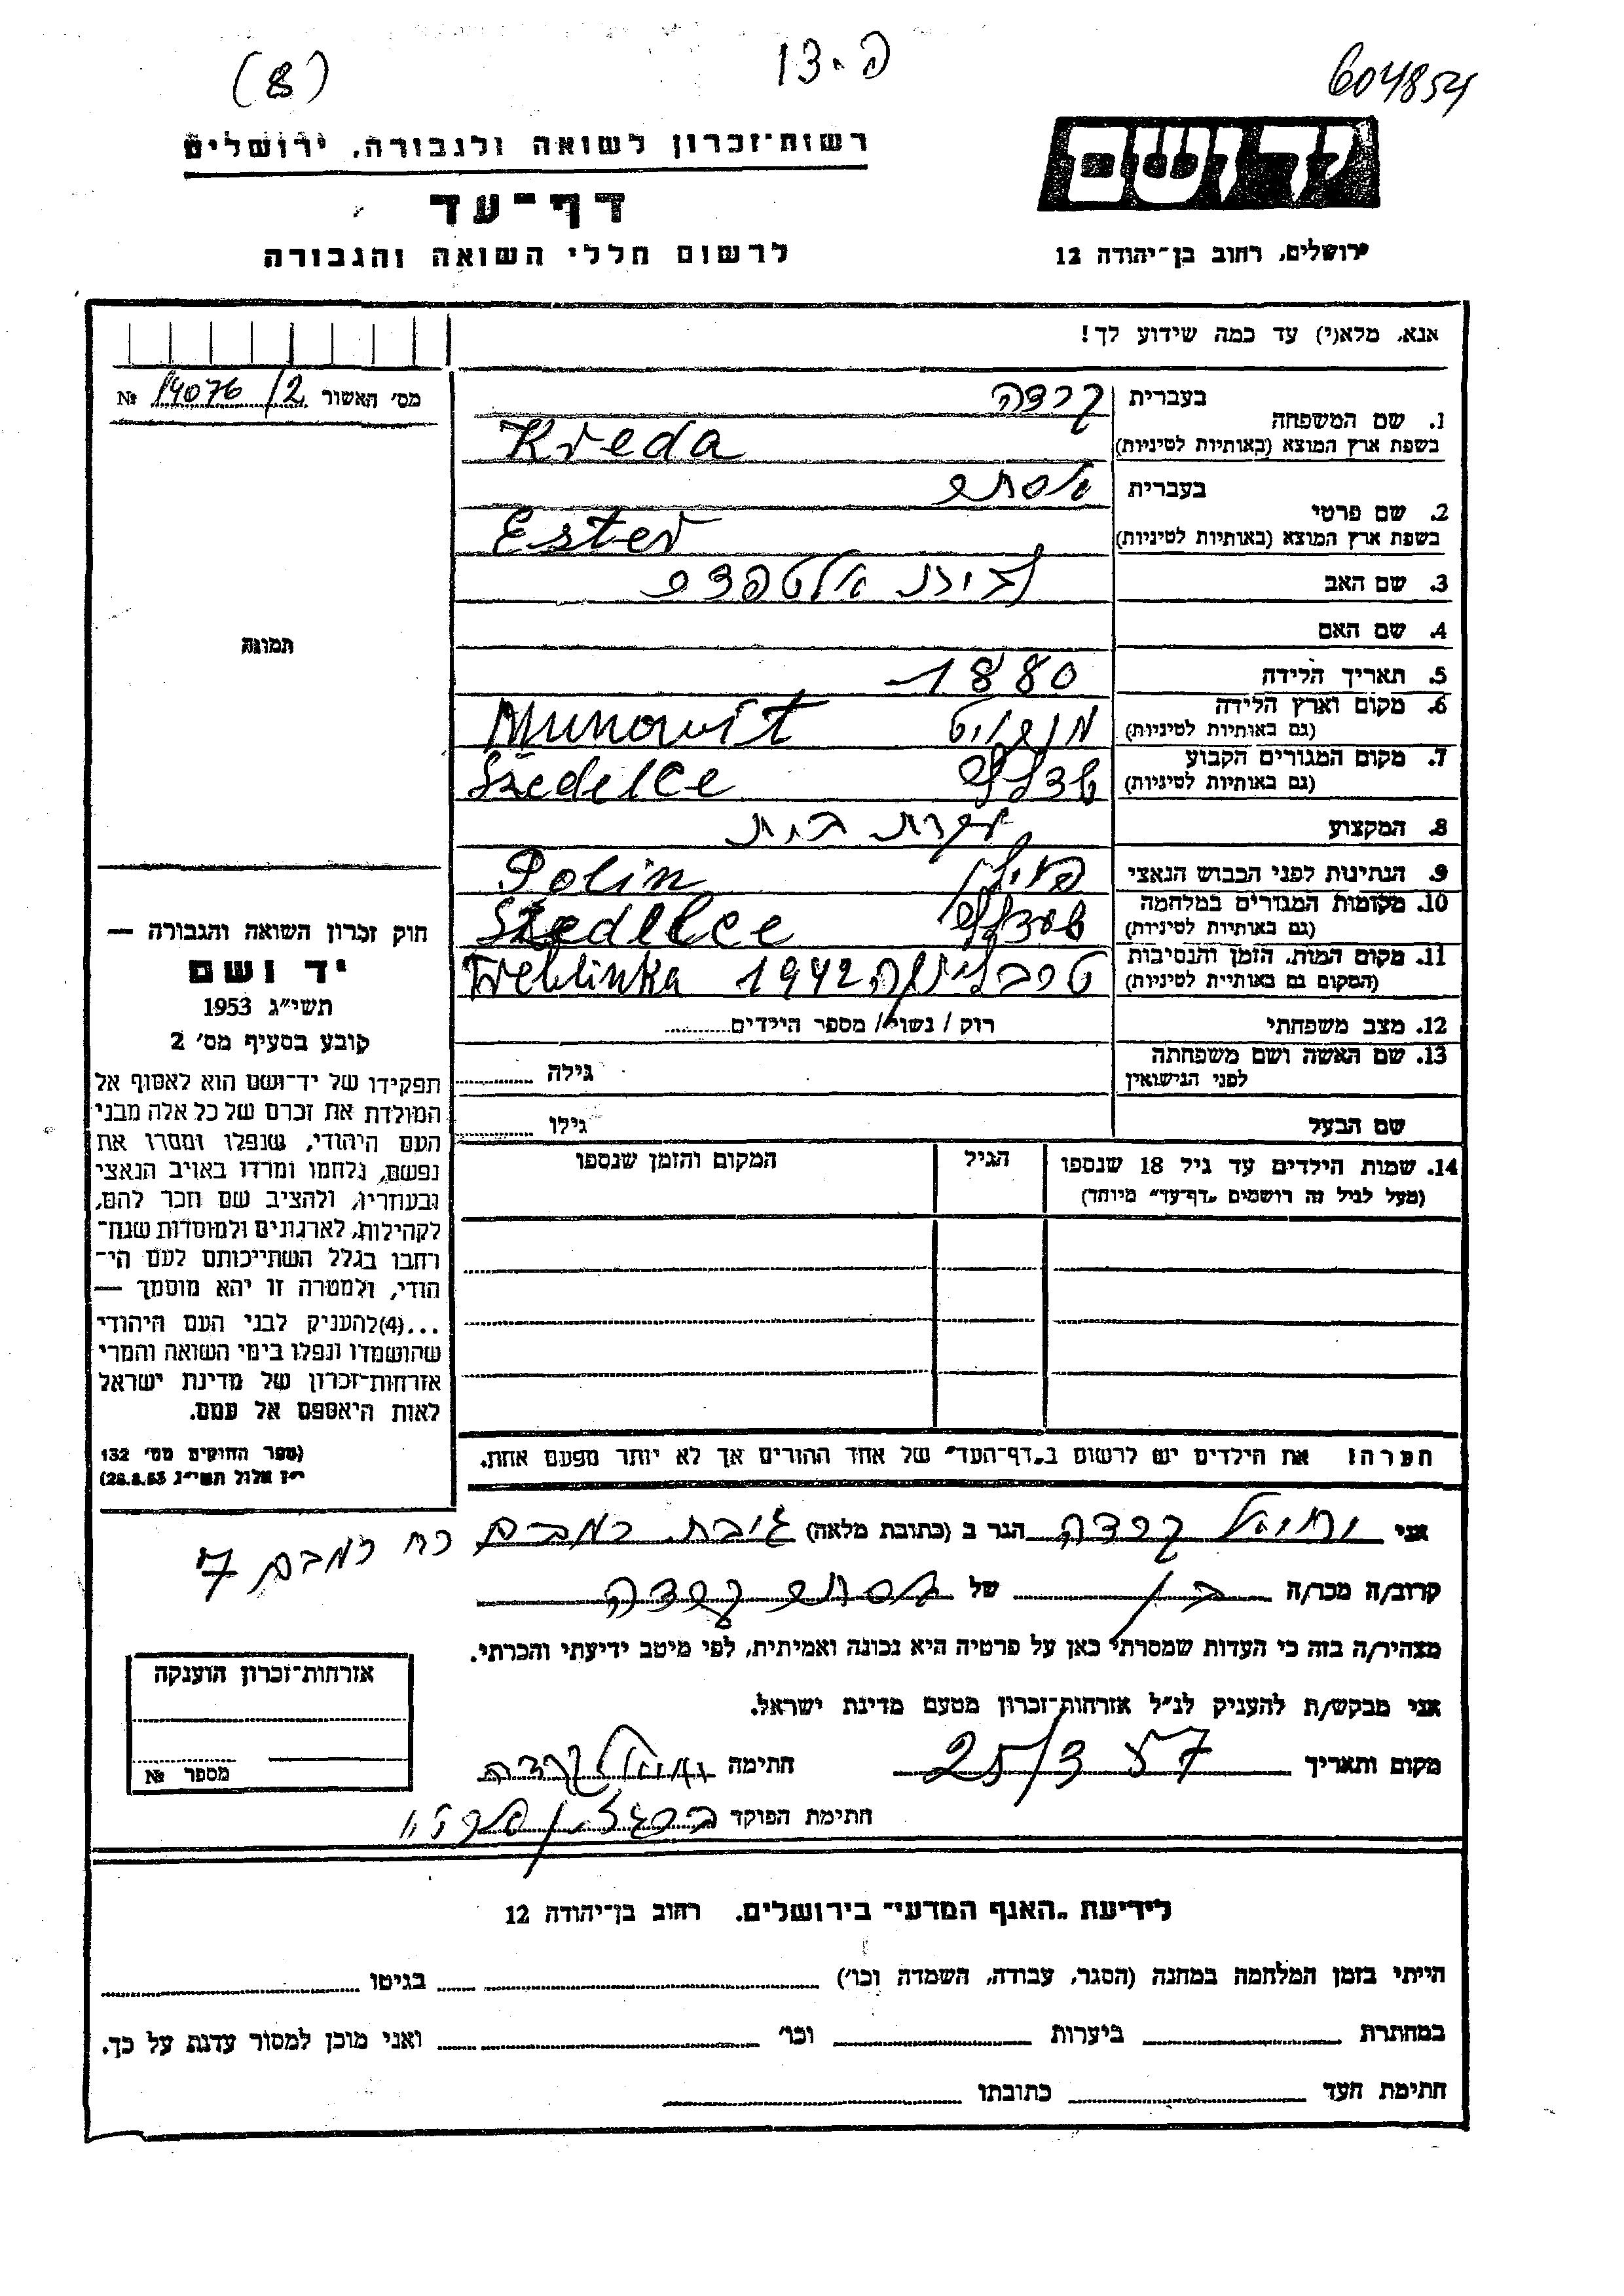 (8)
פ-13
604854
יד ושם
רשות־זכרון לשואה ולגבורה, ירושלים
דף־עד
לרשום חללי השואה והגבורה
ירושלים, רחוב בן־יהודה 12
אנא, מלא(י) עד כמה שידוע לך!
מס׳ האשור 14076/2 №
1. שם המשפחה
בעברית קרדה
בשפת ארץ המוצא (באותיות לטיניות) Kreda
2. שם פרטי
בעברית אסתר
בשפת ארץ המוצא (באותיות לטיניות) Ester
3. שם האב
4. שם האם
5. תאריך הלידה 1880
6. מקום וארץ הלידה
(גם באותיות לטיניות)
7. מקום המגורים הקבוע
(גם באותיות לטיניות) Szedelce
8. המקצוע עקרת בית
9. הנתינות לפני הכבוש הנאצי פולין Polin
10. מקומות המגורים במלחמה
(גם באותיות לטיניות)
11. מקום המות, הזמן והנסיבות
(המקום גם באותיות לטיניות) טרבלינקה 1942 Treblinka
12. מצב משפחתי רוק / נשוי / מספר הילדים
13. שם האשה ושם משפחתה
לפני הנישואין גילה
שם הבעל גילו
14. שמות הילדים עד גיל 18 שנספו
(מעל לגיל זה רושמים „דף־עד” מיוחד)
הגיל
המקום והזמן שנספו
תמונה
חוק זכרון השואה והגבורה —
יד ושם
תשי״ג 1953
קובע בסעיף מס׳ 2
תפקידו של יד־ושם הוא לאסוף אל
המולדת את זכרם של כל אלה מבני
העם היהודי, שנפלו ומסרו את
נפשם, נלחמו ומרדו באויב הנאצי
ובעוזריו, ולהציב שם וזכר להם,
לקהילות, לארגונים ולמוסדות שנח־
רחבו בגלל השתייכותם לעם הי־
הודי, ולמטרה זו יהא מוסמך —
...(4)להעניק לבני העם היהודי
שהושמדו ונפלו בימי השואה והמרי
אזרחות־זכרון של מדינת ישראל
לאות היאספם אל עמם.
(ספר החוקים מס׳ 132
י״ז אלול תשי״ג 28.8.53)
הערה! את הילדים יש לרשום ב„דף־העד” של אחד ההורים אך לא יותר מפעם אחת.
אני קרדה הגר ב (כתובת מלאה)
7
קרוב/ה מכר/ה בן של אסתר קרדה
מצהיר/ה בזה כי העדות שמסרתי כאן על פרטיה היא נכונה ואמיתית, לפי מיטב ידיעתי והכרתי.
אני מבקש/ת להעניק לנ״ל אזרחות־זכרון מטעם מדינת ישראל.
מקום ותאריך 25/3 57 חתימה קרדה
חתימת הפוקד
אזרחות־זכרון הוענקה
מספר №
לידיעת „האנף המדעי” בירושלים. רחוב בן־יהודה 12
הייתי בזמן המלחמה במחנה (הסגר, עבודה, השמדה וכו׳) בגיטו
במחתרת ביערות וכו׳ ואני מוכן למסור עדות על כך.
חתימת העד כתובתו